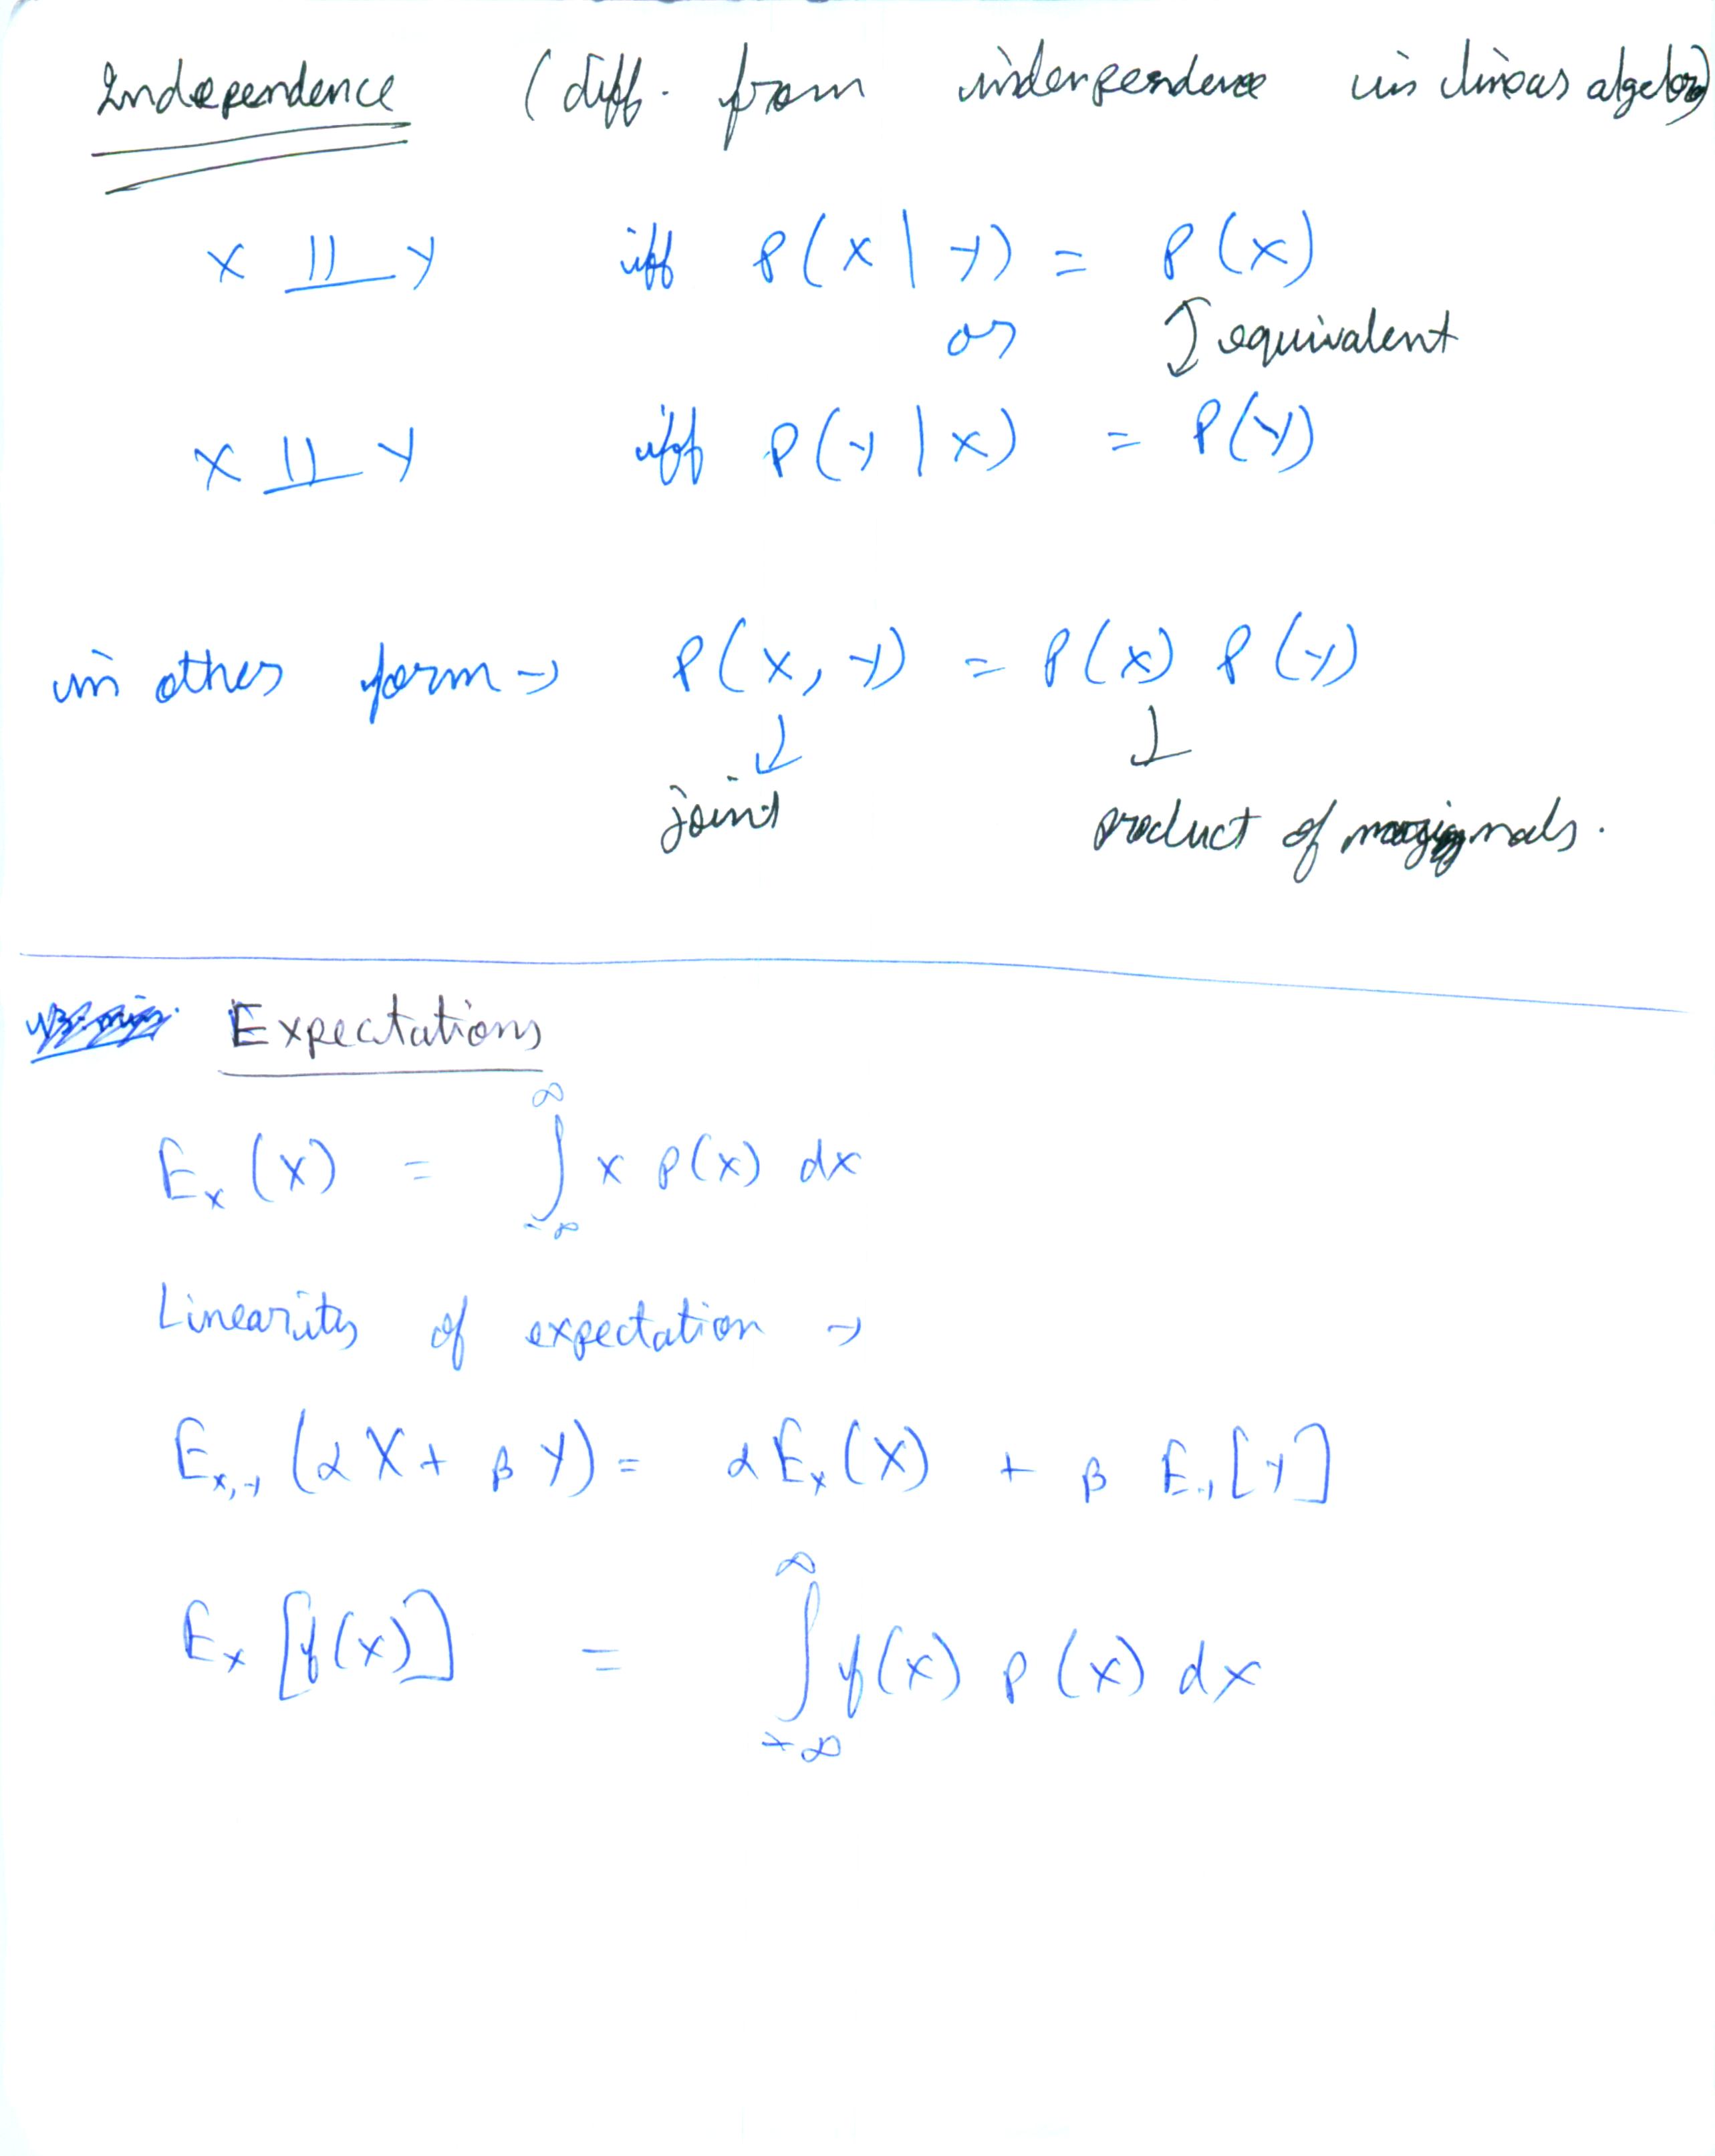 Independence (diff. from independence in linear algebra)
X ⫫ Y iff P(X | Y) = P(X)
or ↕ equivalent
X ⫫ Y iff P(Y | X) = P(Y)
in other form → P(X, Y) = P(X) P(Y)
↓ ↓
joint product of marginals.
Expectations
E_x (X) = ∫_{-∞}^{∞} x p(x) dx
Linearity of expectation →
E_{x,y} (αX + βY) = αE_x(X) + β E_y[Y]
E_x [f(x)] = ∫_{-∞}^{∞} f(x) p(x) dx